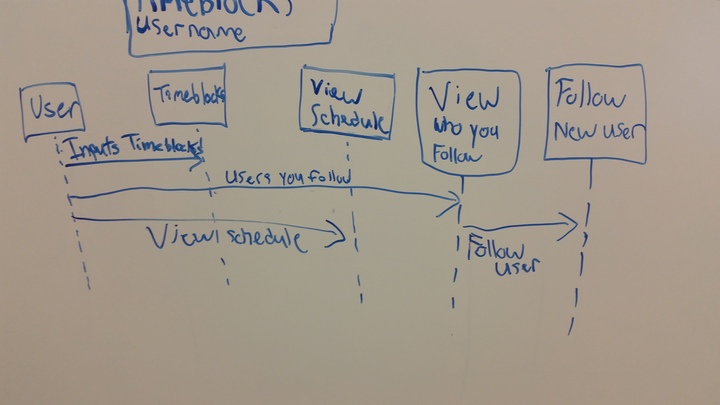 Timeblock,
Username
User
Timeblocks
View
Schedule
View
who you
Follow
Follow
New user
Inputs Timeblocks
Users you follow
View schedule
Follow
user